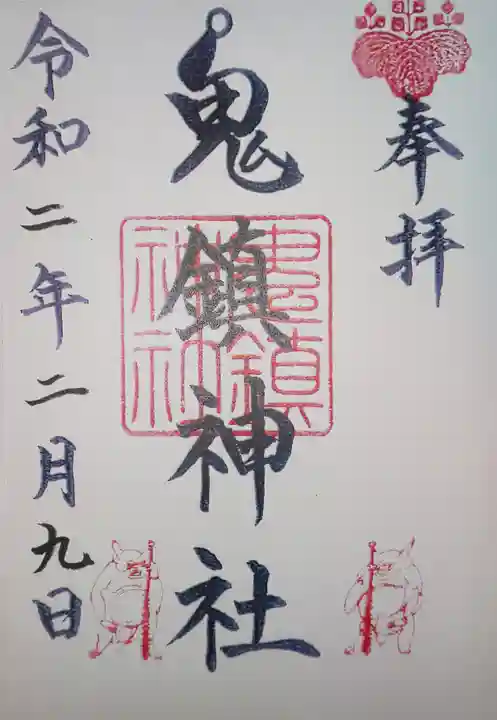 奉拝
鬼鎮神社
鬼鎮神社
令和二年二月九日